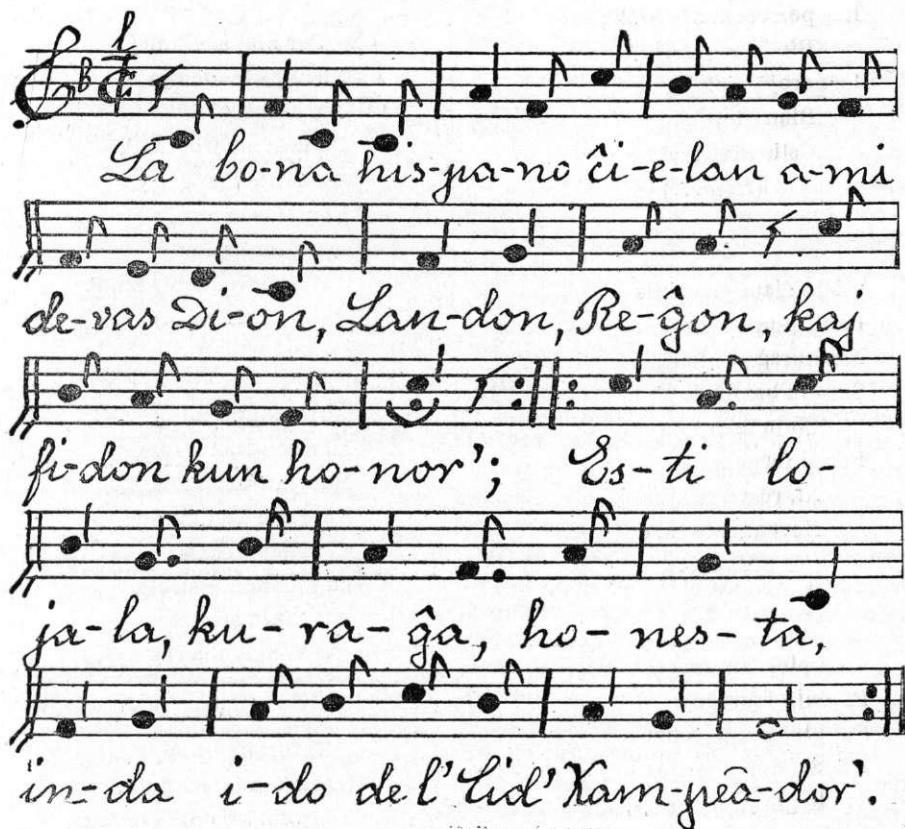 La bo-na his-pa-no ĉi-e-lan a-mi
de-vas Di-on, Lan-don, Re-ĝon, kaj
fi-don kun ho-nor'; Es-ti lo-
ja-la, ku-ra-ĝa, ho-nes-ta,
in-da i-do de l' Cid' Kam-peā-dor'.